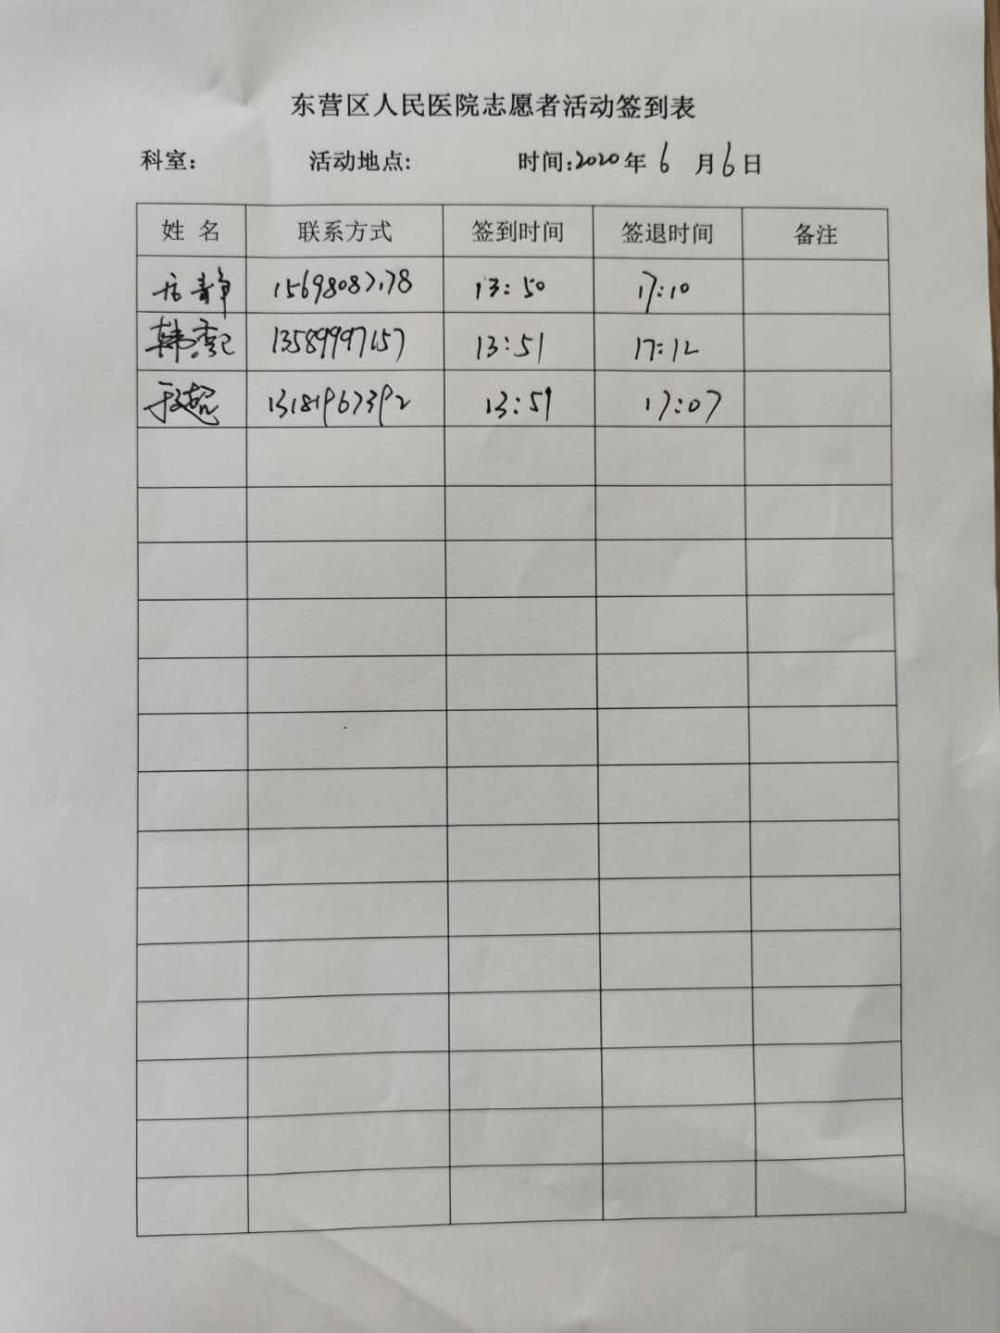 东营区人民医院志愿者活动签到表
科室: 活动地点: 时间:2020年 6 月6日
姓 名 联系方式 签到时间 签退时间 备注
静 13:50 17:10
韩 13589997157 13:51 17:12
超 13:51 17:07